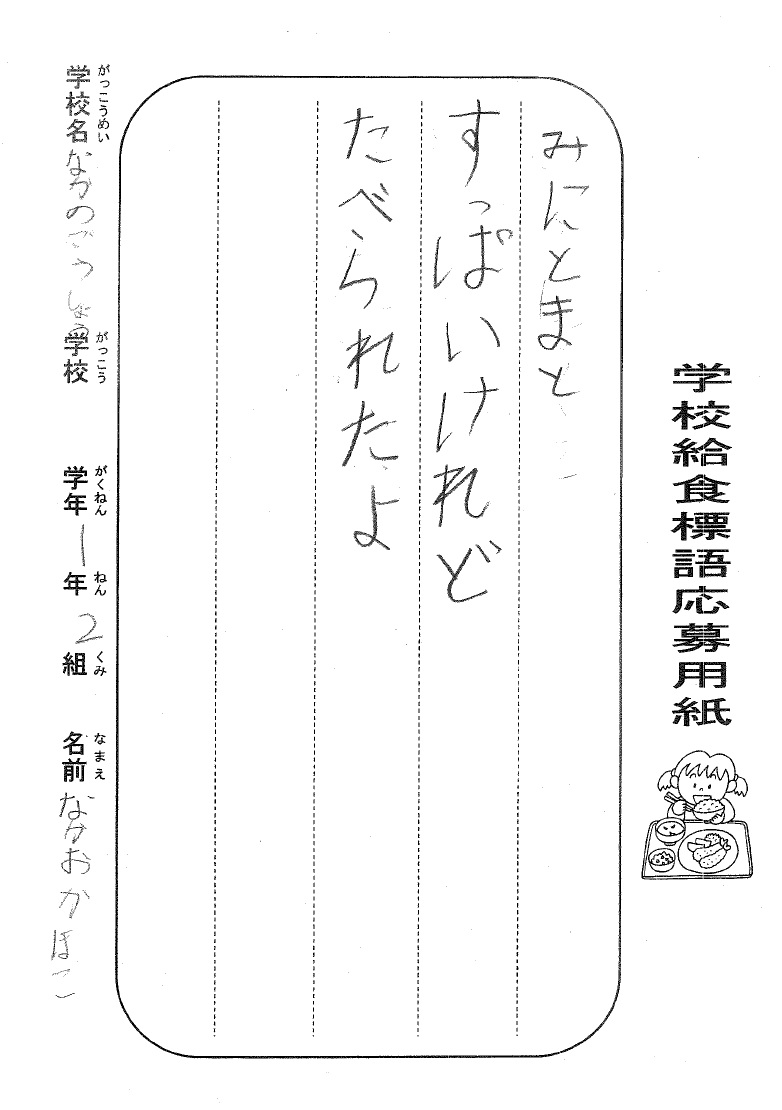 学校給食標語応募用紙
みにとまと
すっぱいけれど
たべられたよ
がっこうめい がっこう がくねん ねん くみ なまえ
学校名 なかのごうしょう 学校 学年 1年 2組 名前 なかおかほこ